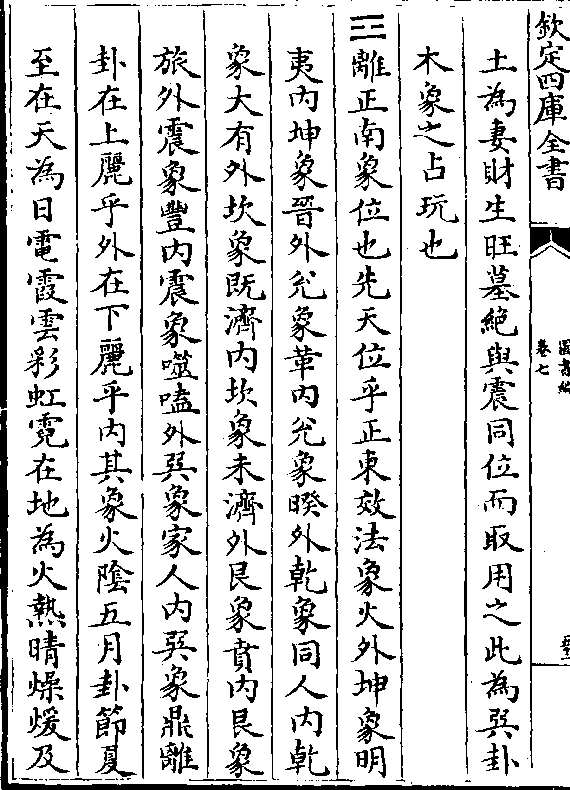 欽定四庫全書
卷七
土為妻財生旺墓絕與震同位而取用之此為巽卦
木象之占玩也
☲離正南象位也先天位乎正東效法象火外坤象明
夷内坤象晉外兊象革内兊象暌外乾象同人内乾
象大有外坎象既濟内坎象未濟外艮象賁内艮象
旅外震象豐内震象噬嗑外巽象家人内巽象鼎離
卦在上麗乎外在下麗乎内其象火陰五月卦節夏
至在天為日電霞雲彩虹霓在地為火熱晴燥煖及